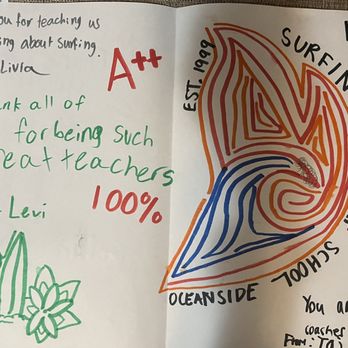 ou for teaching us
ing about surfing.
Livia
A++
nk all of
for being such
reat teachers
100%
- Levi
EST. 1989
SURFIN
SCHOOL
OCEANSIDE
You an
coaches
From: Taj